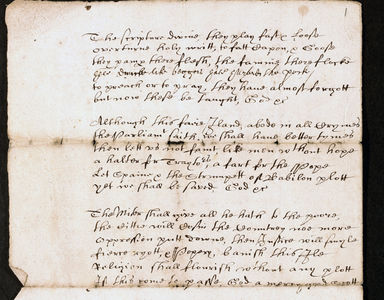 1
The scripture divine they play fast & loose
overturne holy writt, to fatt Capon, & Goose
they pamp there flesh, the famine there flocke
like
to preach or to pray, they have almost forgott
but now these be taught, God &c
Although this faire Iland, abode in all Crymes
the Parliamt saith, we shall have better tymes
then let us not faint like men without hope
a halter for Traytors, a fart for the Pope
Let Spaine & the Strumpett of Babilon plott
yet we shall be saved God &c
The Miser shall give all he hath to the poore,
the Cittie will the Countrey noe more
Opression putt downe, then Justice will smyle
fierce ryott, & Popery, banish this Ile
Religion shall florish without any plott
If this come to passe, God a mercy good Scott